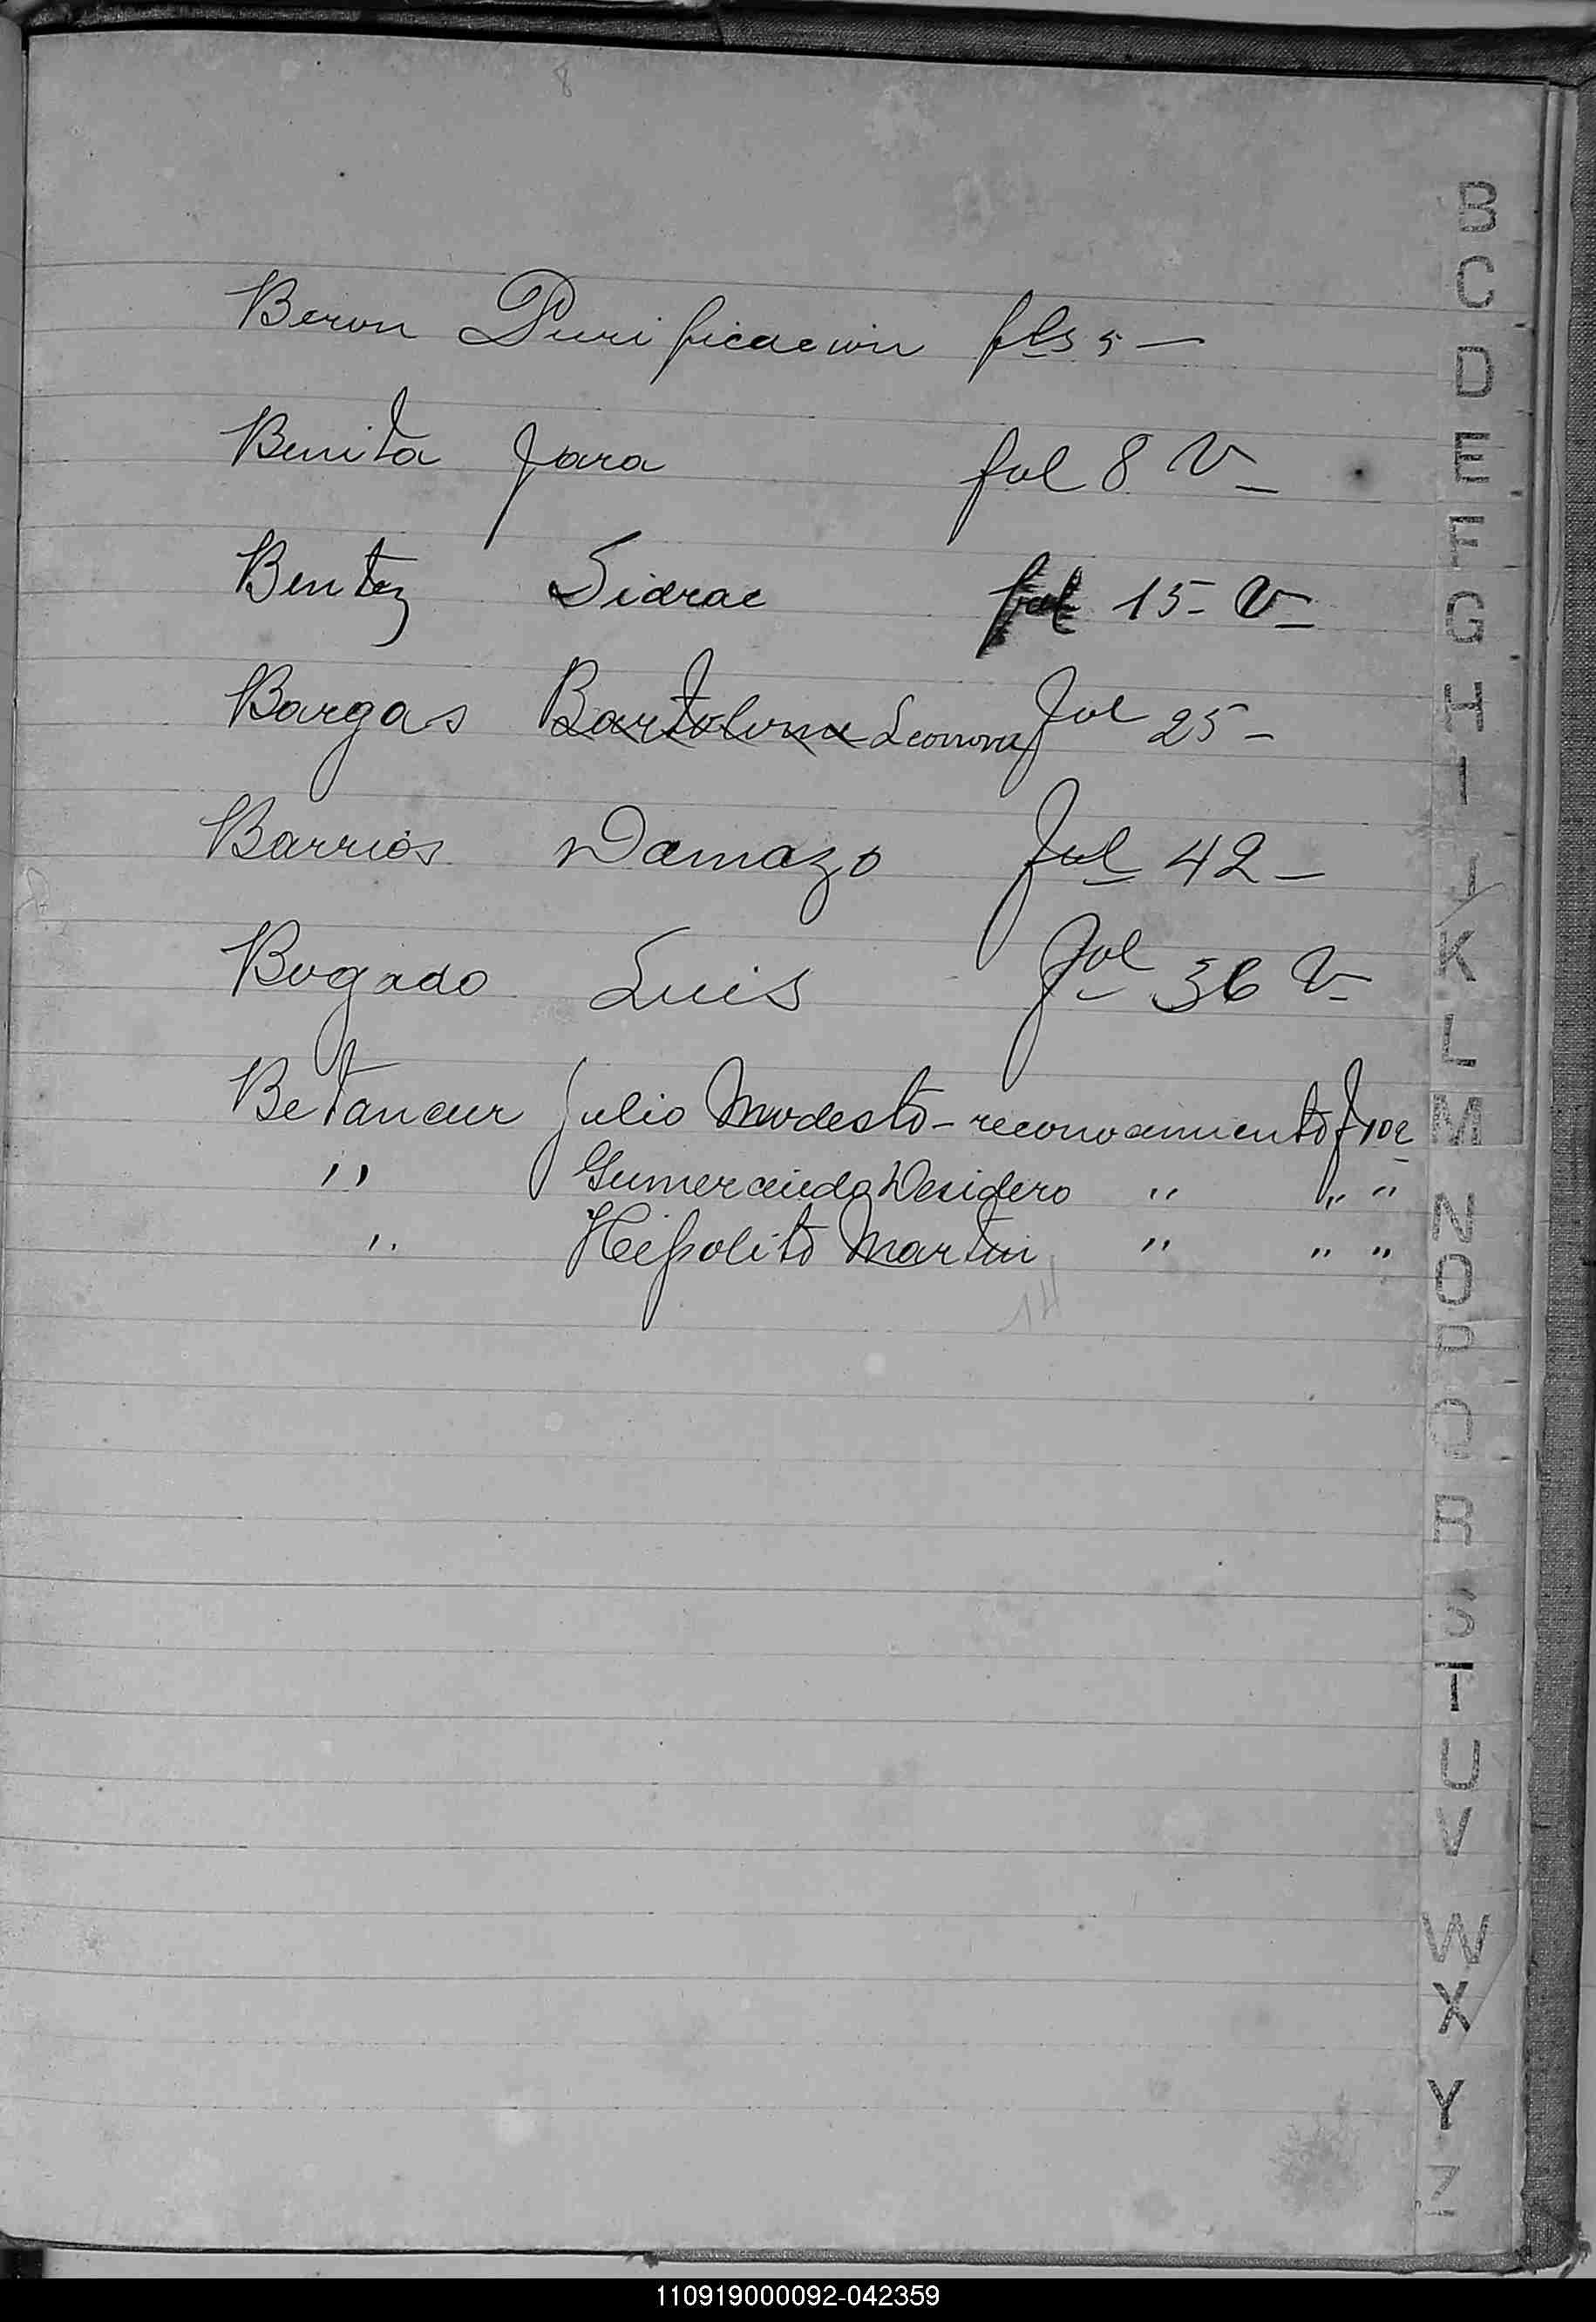 8
Beron Purificacion fls 5 —
Benita Jara fol 8 V —
Bentez Sidrac fol 15 - V —
Bargas Bartolome Leonora fol 25 —
Barrios Damazo fol 42 —
Bogado Luis fol 36 V —
Betancur Julio Modesto - reconocimiento f 102
" Gumercindo Desidero " " "
" Heipolito Martin " " "
14
B
C
D
E
F
G
H
I
J
K
L
M
N
O
P
Q
R
S
T
U
V
W
X
Y
Z
110919000092-042359